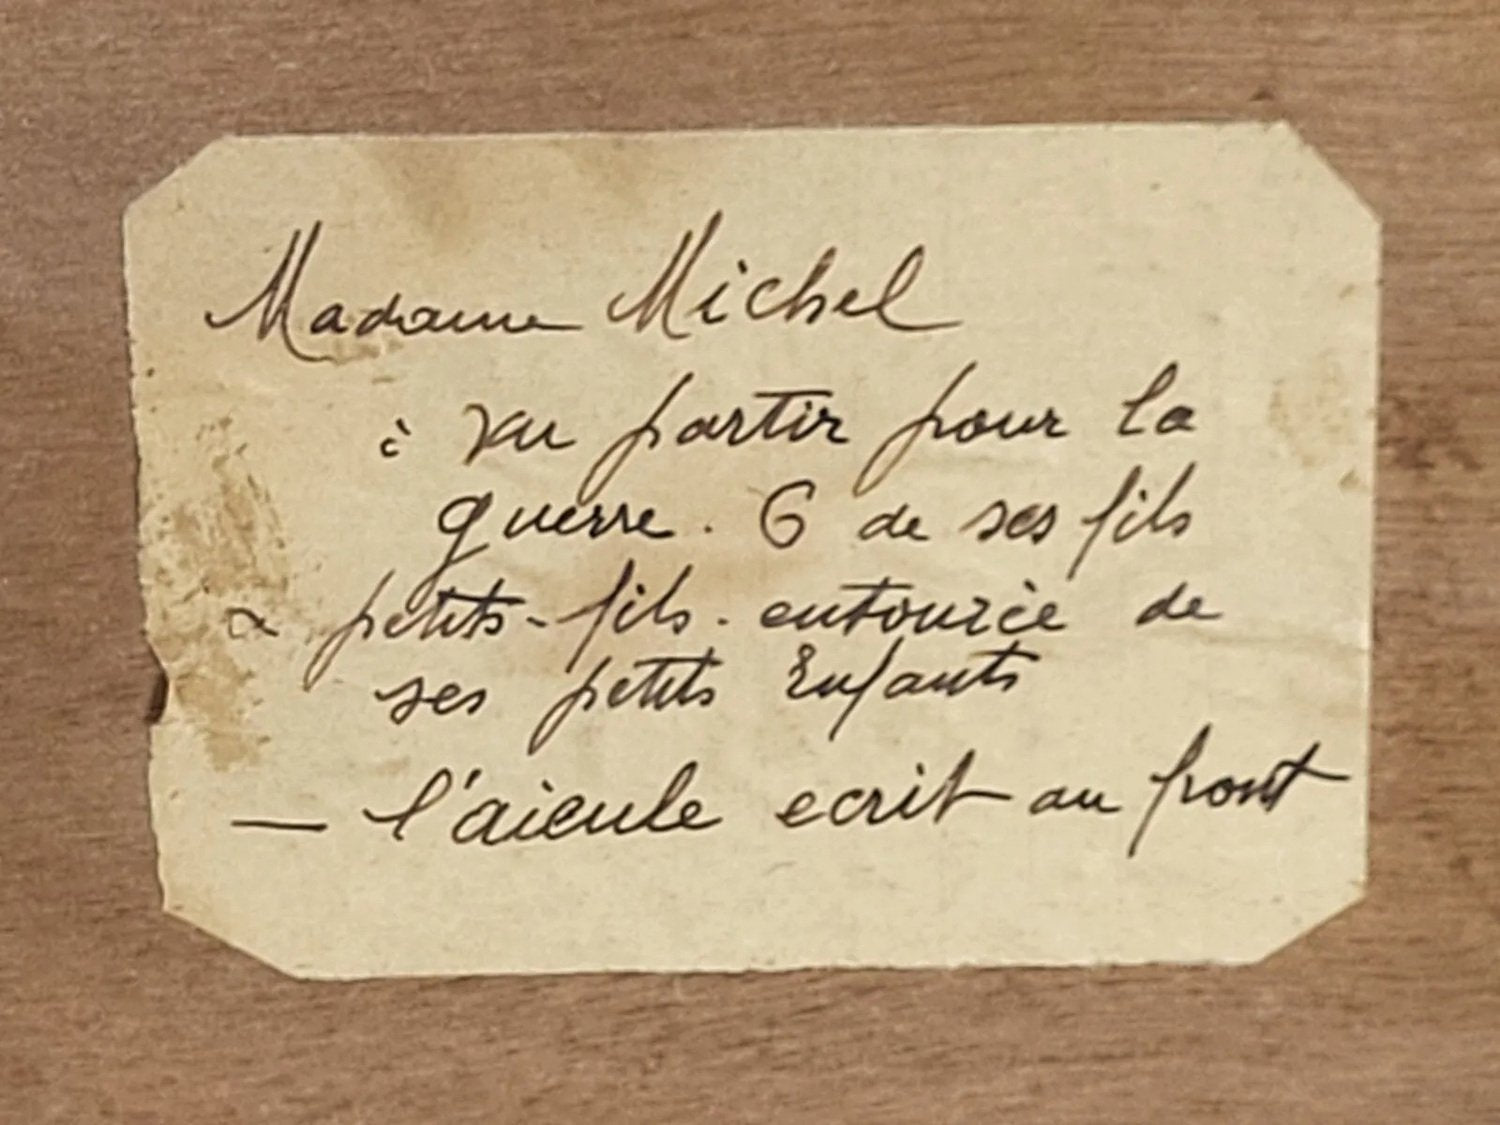 Madame Michel
à vu partir pour la
guerre. 6 de ses fils
& petits-fils. entourée de
ses petits Enfants
— l'aieule ecrit au front